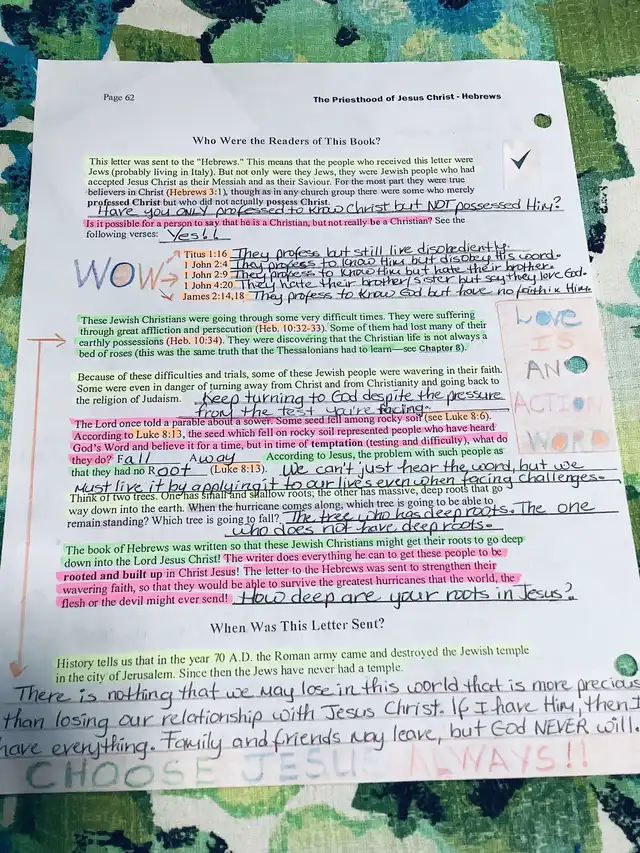 Page 62
The Priesthood of Jesus Christ - Hebrews
Who Were the Readers of This Book?
This letter was sent to the "Hebrews." This means that the people who received this letter were
Jews (probably living in Italy). But not only were they Jews, they were Jewish people who had
accepted Jesus Christ as their Messiah and as their Saviour. For the most part they were true
believers in Christ (Hebrews 3:1), though as in any church group there were some who merely
professed Christ but who did not actually possess Christ.
Have you ONLY professed to know Christ but NOT possessed Him?
Is it possible for a person to say that he is a Christian, but not really be a Christian? See the
following verses: Yes!!
WOW
Titus 1:16 They profess but still live disobediently.
1 John 2:4 They profess to know Him but disobey His word.
1 John 2:9 They profess to know Him but hate their brother.
1 John 4:20 They hate their brother/sister but say they love God.
James 2:14,18 They profess to know God but have no faith in Him.
These Jewish Christians were going through some very difficult times. They were suffering
through great affliction and persecution (Heb. 10:32-33). Some of them had lost many of their
earthly possessions (Heb. 10:34). They were discovering that the Christian life is not always a
bed of roses (this was the same truth that the Thessalonians had to learn—see Chapter 8).
LOVE
IS
AN
ACTION
WORD
Because of these difficulties and trials, some of these Jewish people were wavering in their faith.
Some were even in danger of turning away from Christ and from Christianity and going back to
the religion of Judaism. Keep turning to God despite the pressure
from the test you're facing.
The Lord once told a parable about a sower. Some seed fell among rocky soil (see Luke 8:6).
According to Luke 8:13, the seed which fell on rocky soil represented people who have heard
God's Word and believe it for a time, but in time of temptation (testing and difficulty), what do
they do? Fall Away According to Jesus, the problem with such people as
that they had no Root (Luke 8:13). We can't just hear the word, but we
must live it by applying it to our live's even when facing challenges.
Think of two trees. One has small and shallow roots, the other has massive, deep roots that go
way down into the earth. When the hurricane comes along, which tree is going to be able to
remain standing? Which tree is going to fall? The tree who has deep roots. The one
who does not have deep roots.
The book of Hebrews was written so that these Jewish Christians might get their roots to go deep
down into the Lord Jesus Christ! The writer does everything he can to get these people to be
rooted and built up in Christ Jesus! The letter to the Hebrews was sent to strengthen their
wavering faith, so that they would be able to survive the greatest hurricanes that the world, the
flesh or the devil might ever send! How deep are your roots in Jesus?
When Was This Letter Sent?
History tells us that in the year 70 A.D. the Roman army came and destroyed the Jewish temple
in the city of Jerusalem. Since then the Jews have never had a temple.
There is nothing that we may lose in this world that is more precious
than losing our relationship with Jesus Christ. If I have Him, then I
have everything. Family and friends may leave, but God NEVER will.
CHOOSE JESUS ALWAYS!!